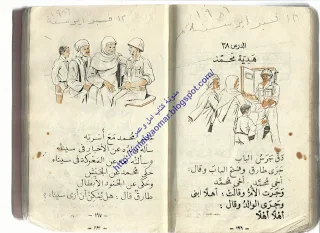 الدرس ٣٨
هدية محمد
دق جرس الباب
جرى طارق وفتح الباب وقال:
أخي محمد.. أخي محمد
وجرت الأم وقالت: أهلا ابني
وجرى الوالد وقال:
أهلا أهلا
١٩٦
محمد مع أسرته
سأله والده عن الأخبار في سيناء
وسأله عن المعركة في سيناء
حكى محمد عن الجيش
وحكى عن الجنود الأبطال
طارق قال: هل يمكن أن أرى سيناء؟
١٩٧
amlwaomar.blogspot.com